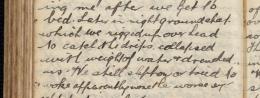 ing me after we got to
bed. Later in night groundsheet
which we rigged up over head
to catch the drips collapsed
with weight of water & drowned
us. We still slept on & used to
woke apparently none the worse ex